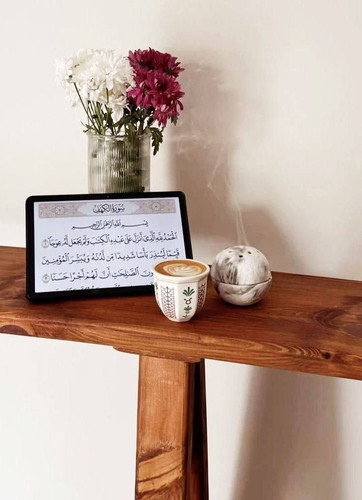 سُورَةُ الكَهْفِ
بِسْمِ اللَّهِ الرَّحْمَٰنِ الرَّحِيمِ
الْحَمْدُ لِلَّهِ الَّذِي أَنزَلَ عَلَىٰ عَبْدِهِ الْكِتَٰبَ وَلَمْ يَجْعَل لَّهُ عِوَجًا ١
قَيِّمًا لِّيُنذِرَ بَأْسًا شَدِيدًا مِّن لَّدُنْهُ وَيُبَشِّرَ الْمُؤْمِنِينَ
ونَ الصَّٰلِحَٰتِ أَنَّ لَهُمْ أَجْرًا حَسَنًا ٢